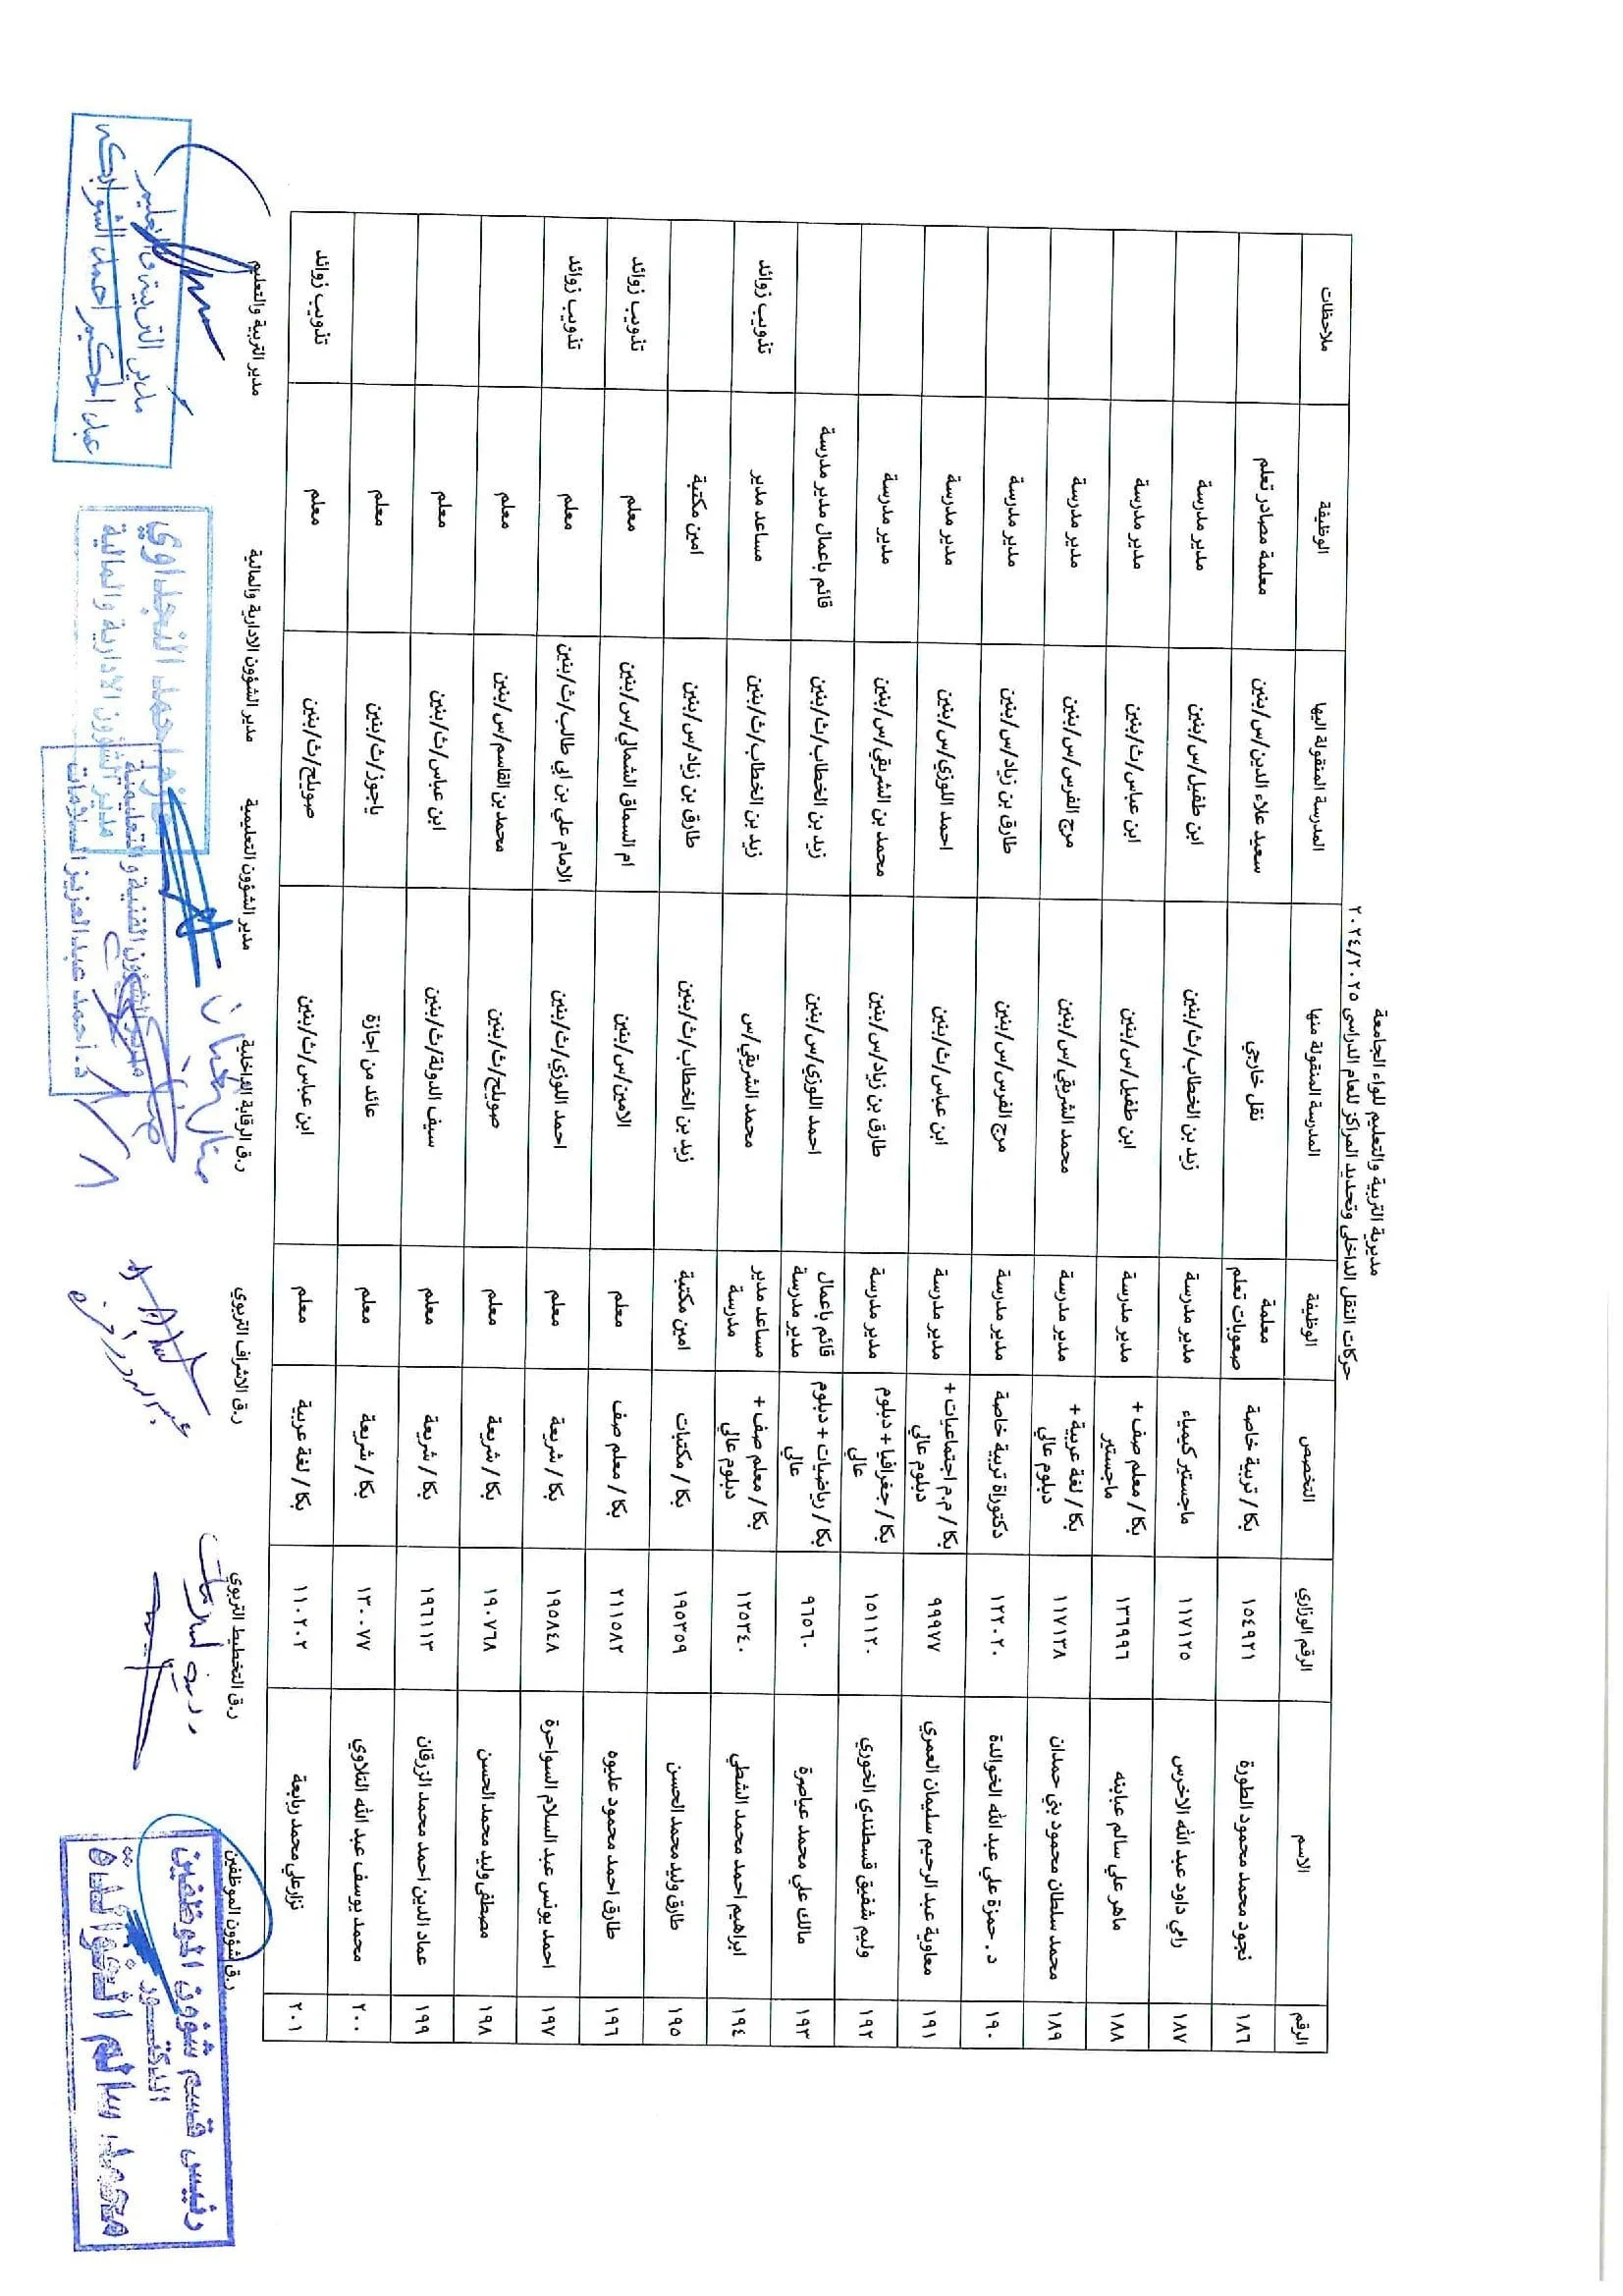 مديرية التربية والتعليم للواء الجامعة
حركات النقل الداخلي وتحديد المراكز للعام الدراسي ٢٠٢٤/٢٠٢٥
الرقم الاسم الرقم الوزاري التخصص الوظيفة المدرسة المنقولة منها المدرسة المنقولة اليها الوظيفة ملاحظات
١٨٦ نجود محمد محمود الطورة ١٥٤٩٢١ بكا / تربية خاصة معلمة صعوبات تعلم نقل خارجي سعيد علاء الدين/س/بنين معلمة مصادر تعلم
١٨٧ رامي داود عبد الله الاخرس ١١٧١٢٥ ماجستير كيمياء مدير مدرسة زيد بن الخطاب/ث/بنين ابن طفيل/س/بنين مدير مدرسة
١٨٨ ماهر علي سالم عبابنه ١٣٦٩٩٦ بكا / معلم صف + ماجستير مدير مدرسة ابن طفيل/س/بنين ابن عباس/ث/بنين مدير مدرسة
١٨٩ محمد سلطان محمود بني حمدان ١١٧١٣٨ بكا / لغة عربية + دبلوم عالي مدير مدرسة محمد الشريقي/س/بنين مرج الفرس/س/بنين مدير مدرسة
١٩٠ د . حمزة علي عبد الله الخوالدة ١٢٢٠٢٠ دكتوراة تربية خاصة مدير مدرسة مرج الفرس/س/بنين طارق بن زياد/س/بنين مدير مدرسة
١٩١ معاوية عبد الرحيم سليمان العمري ٩٩٩٧٧ بكا / م.م اجتماعيات + دبلوم عالي مدير مدرسة ابن عباس/ث/بنين احمد اللوزي/س/بنين مدير مدرسة
١٩٢ وليم شفيق قسطندي الخوري ١٥١١٢٠ بكا / جغرافيا + دبلوم عالي مدير مدرسة طارق بن زياد/س/بنين محمد بن الشريقي/س/بنين مدير مدرسة
١٩٣ مالك علي محمد عياصرة ٩٦٥٦٠ بكا / رياضيات + دبلوم عالي قائم باعمال مدير مدرسة احمد اللوزي/س/بنين زيد بن الخطاب/ث/بنين قائم باعمال مدير مدرسة
١٩٤ ابراهيم احمد محمد الشطي ١٢٥٣٤٠ بكا / معلم صف + دبلوم عالي مساعد مدير مدرسة محمد الشريقي/س زيد بن الخطاب/ث/بنين مساعد مدير تذويب زوائد
١٩٥ طارق وليد محمد الحسن ١٩٥٣٥٩ بكا / مكتبات امين مكتبة زيد بن الخطاب/ث/بنين طارق بن زياد/س/بنين امين مكتبة
١٩٦ طارق احمد محمود عليوه ٢١١٥٨٢ بكا / معلم صف معلم الامين/س/بنين ام السماق الشمالي/س/بنين معلم تذويب زوائد
١٩٧ احمد يونس عبد السلام السواحرة ١٩٥٨٤٨ بكا / شريعة معلم احمد اللوزي/ث/بنين الامام علي بن ابي طالب/ث/بنين معلم تذويب زوائد
١٩٨ مصطفى وليد محمد الحسن ١٩٠٧٦٨ بكا / شريعة معلم صويلح/ث/بنين محمد بن القاسم/س/بنين معلم
١٩٩ عماد الدين احمد محمد الزرقان ١٩٦١١٣ بكا / شريعة معلم سيف الدولة/ث/بنين ابن عباس/ث/بنين معلم
٢٠٠ محمد يوسف عبد الله التلاوي ١٣٠٠٧٧ بكا / شريعة معلم عائد من اجازة ياجوز/ث/بنين معلم
٢٠١ نزار علي محمد ربابعة ١١٠٢٠٢ بكا / لغة عربية معلم ابن عباس/ث/بنين صويلح/ث/بنين معلم تذويب زوائد
ر.ق شؤون الموظفين ر.ق التخطيط التربوي ر.ق الاشراف التربوي ر.ق الرقابة الداخلية مدير الشؤون التعليمية مدير الشؤون الادارية والمالية مدير التربية والتعليم
رئيس قسم شؤون الموظفين
الدكتور
محمد سالم الخوالدة
مدير الشؤون الفنية والتعليمية
د. احمد عبد العزيز السلامات
احمد النجداوي
مدير الشؤون الادارية والمالية
مدير التربية والتعليم
عبد الحكيم احمد الشوابكه